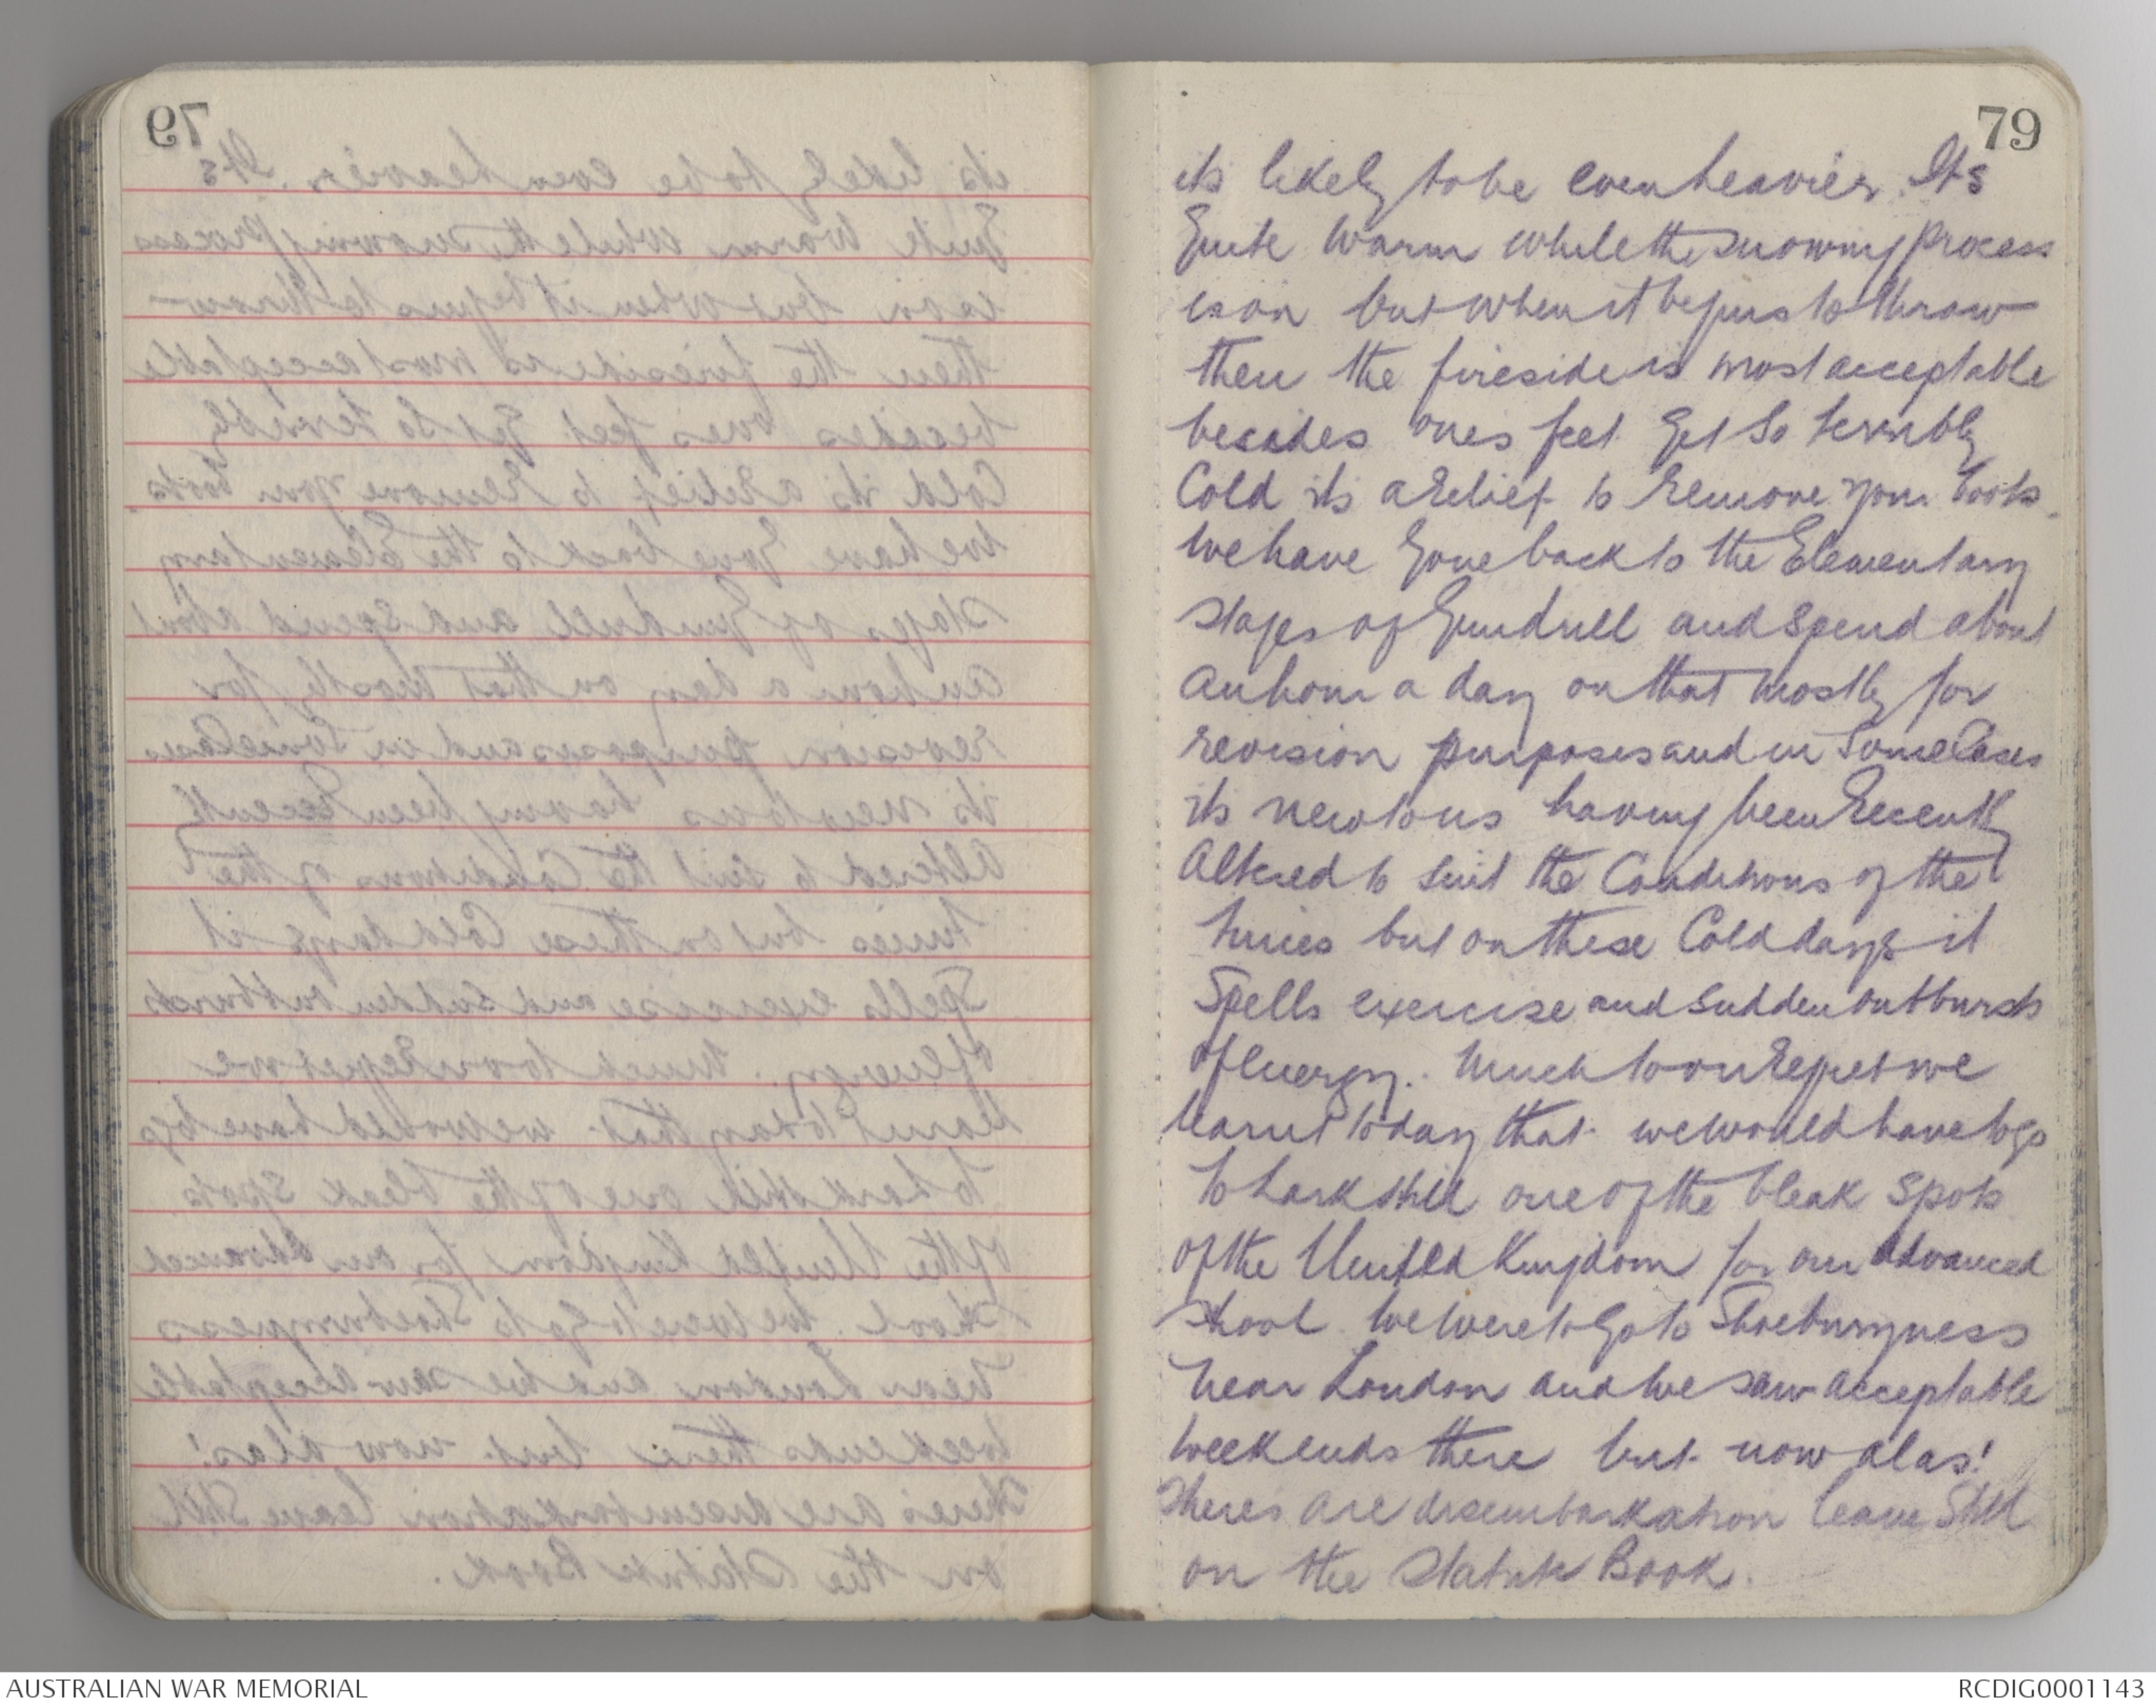 79
its likely to be even heavier. Its
quite warm while the snowing process
is on but when it begins to thraw
then the fireside is most acceptable
besides ones feet get so terribly
Cold its a relief to remove your boots.
We have gone back to the Elementary
stages of Gundrill and spend about
an hour a day on that mostly for
revision purposes and in some Cases
its new to us having been recently
altered to suit the Conditions of the
times but on these Cold days it
Spells exercise and sudden outbursts
of energy. Much to our regret we
learnt today that we would have to go
to Larkshill one of the bleak spots
of the United Kingdom for our advanced
school we were to go to Shoeburyness
near London and we saw acceptable
weekends there but now alas!
Theres are disembarkation leave Still
on the Statute Book.
AUSTRALIAN WAR MEMORIAL
RCDIG0001143